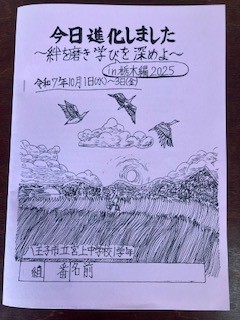 今日進化しました
～絆を磨き学びを深めよ～
in 栃木編2025
令和7年10月1日(水)～3日(金)
八王子市立宮上中学校1学年
組 番 名前